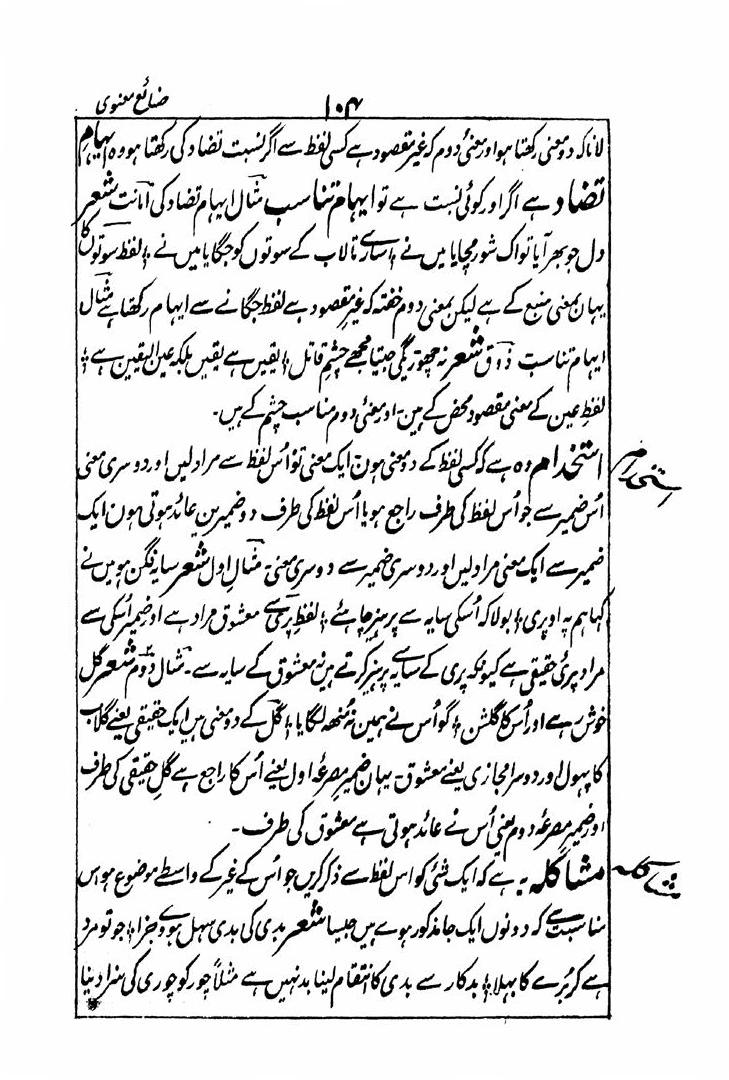 ۱۰۴ صنائع معنوی
لانا کہ دو معنی رکھتا ہو اور معنیٔ دوم کہ غیر مقصود ہے کسی لفظ سے اگر نسبت تضاد کی رکھتا ہو وہ ایہامِ
تضاد ہے اگر اور کوئی نسبت ہے تو ایہام تناسب مثال ایہام تضاد کی امانت شعر
دل جو بھر آیا تو اک شور مچایا میں نے ؛ سارے تالاب کے سوتوں کو جگایا میں نے ؛ لفظ سوتوں کا
یہان بمعنی منبع کے ہے لیکن بمعنی دوم خفتہ کہ غیر مقصود ہے لفظ جگانے سے ایہام رکھتا ہے مثال
ایہام تناسب ذوق شعر نہ چھوڑیگی جیتا مجھے چشمِ قاتل ؛ یقین ہے یقیں بلکہ عین الیقین ہے ؛
لفظِ عین کے معنی مقصود محض کے ہین۔ اور معنی دوم مناسب چشم کے ہیں۔
استخدام
استخدام وہ ہے کہ کسی لفظ کے دو معنی ہون ایک معنی تو اُس لفظ سے مراد لیں اور دوسری معنی
اُس ضمیر سے جو اُس لفظ کی طرف راجع ہو یا اُس لفظ کی طرف دو ضمیرین عائد ہوتی ہون ایک
ضمیر سے ایک معنی مراد لیں اور دوسری ضمیر سے دوسری معنی۔ مثالِ اول شعر سایہ فگن ہو میں نے
کہا ہم پہ او پری ؛ بولا کہ اُسکی سایہ سے پرہیز چاہئے ؛ لفظِ پری سے معشوق مراد ہے اور ضمیر اُسکی سے
مراد پریٔ حقیقی ہے کیونکہ پری کے سایے پرہیز کرتے ہین نہ معشوق کے سایہ سے۔ مثال دوم شعر گل
خوش رہے اور اُس کا گلشن ؛ گو اُس نے ہمین نہ مُنھ لگایا ؛ گل کے دو معنی ہیں ایک حقیقی یعنے گلاب
کا پہول اور دوسرا مجازی یعنے معشوق۔ یہان ضمیر مصرعہ اول یعنے اُس کا راجع ہے گلِ حقیقی کی طرف
اور ضمیر مصرعہ دوم یعنی اُس نے عائد ہوتی ہے معشوق کی طرف۔
مشاکلہ
مشاکلہ یہ ہے کہ ایک شئی کو اس لفظ سے ذکر کریں جو اُس کے غیر کے واسطے موضوع ہو اس
مناسبت سے کہ دونوں ایک جا مذکور ہوے ہیں جیسا شعر بدی کی بدی سہل ہووے جزا ؛ جو تو مرد
ہے کر بُرے کا بہلا ؛ بدکار سے بدی کا انتقام لینا بد نہیں ہے مثلاً چور کو چوری کی سزا دینا